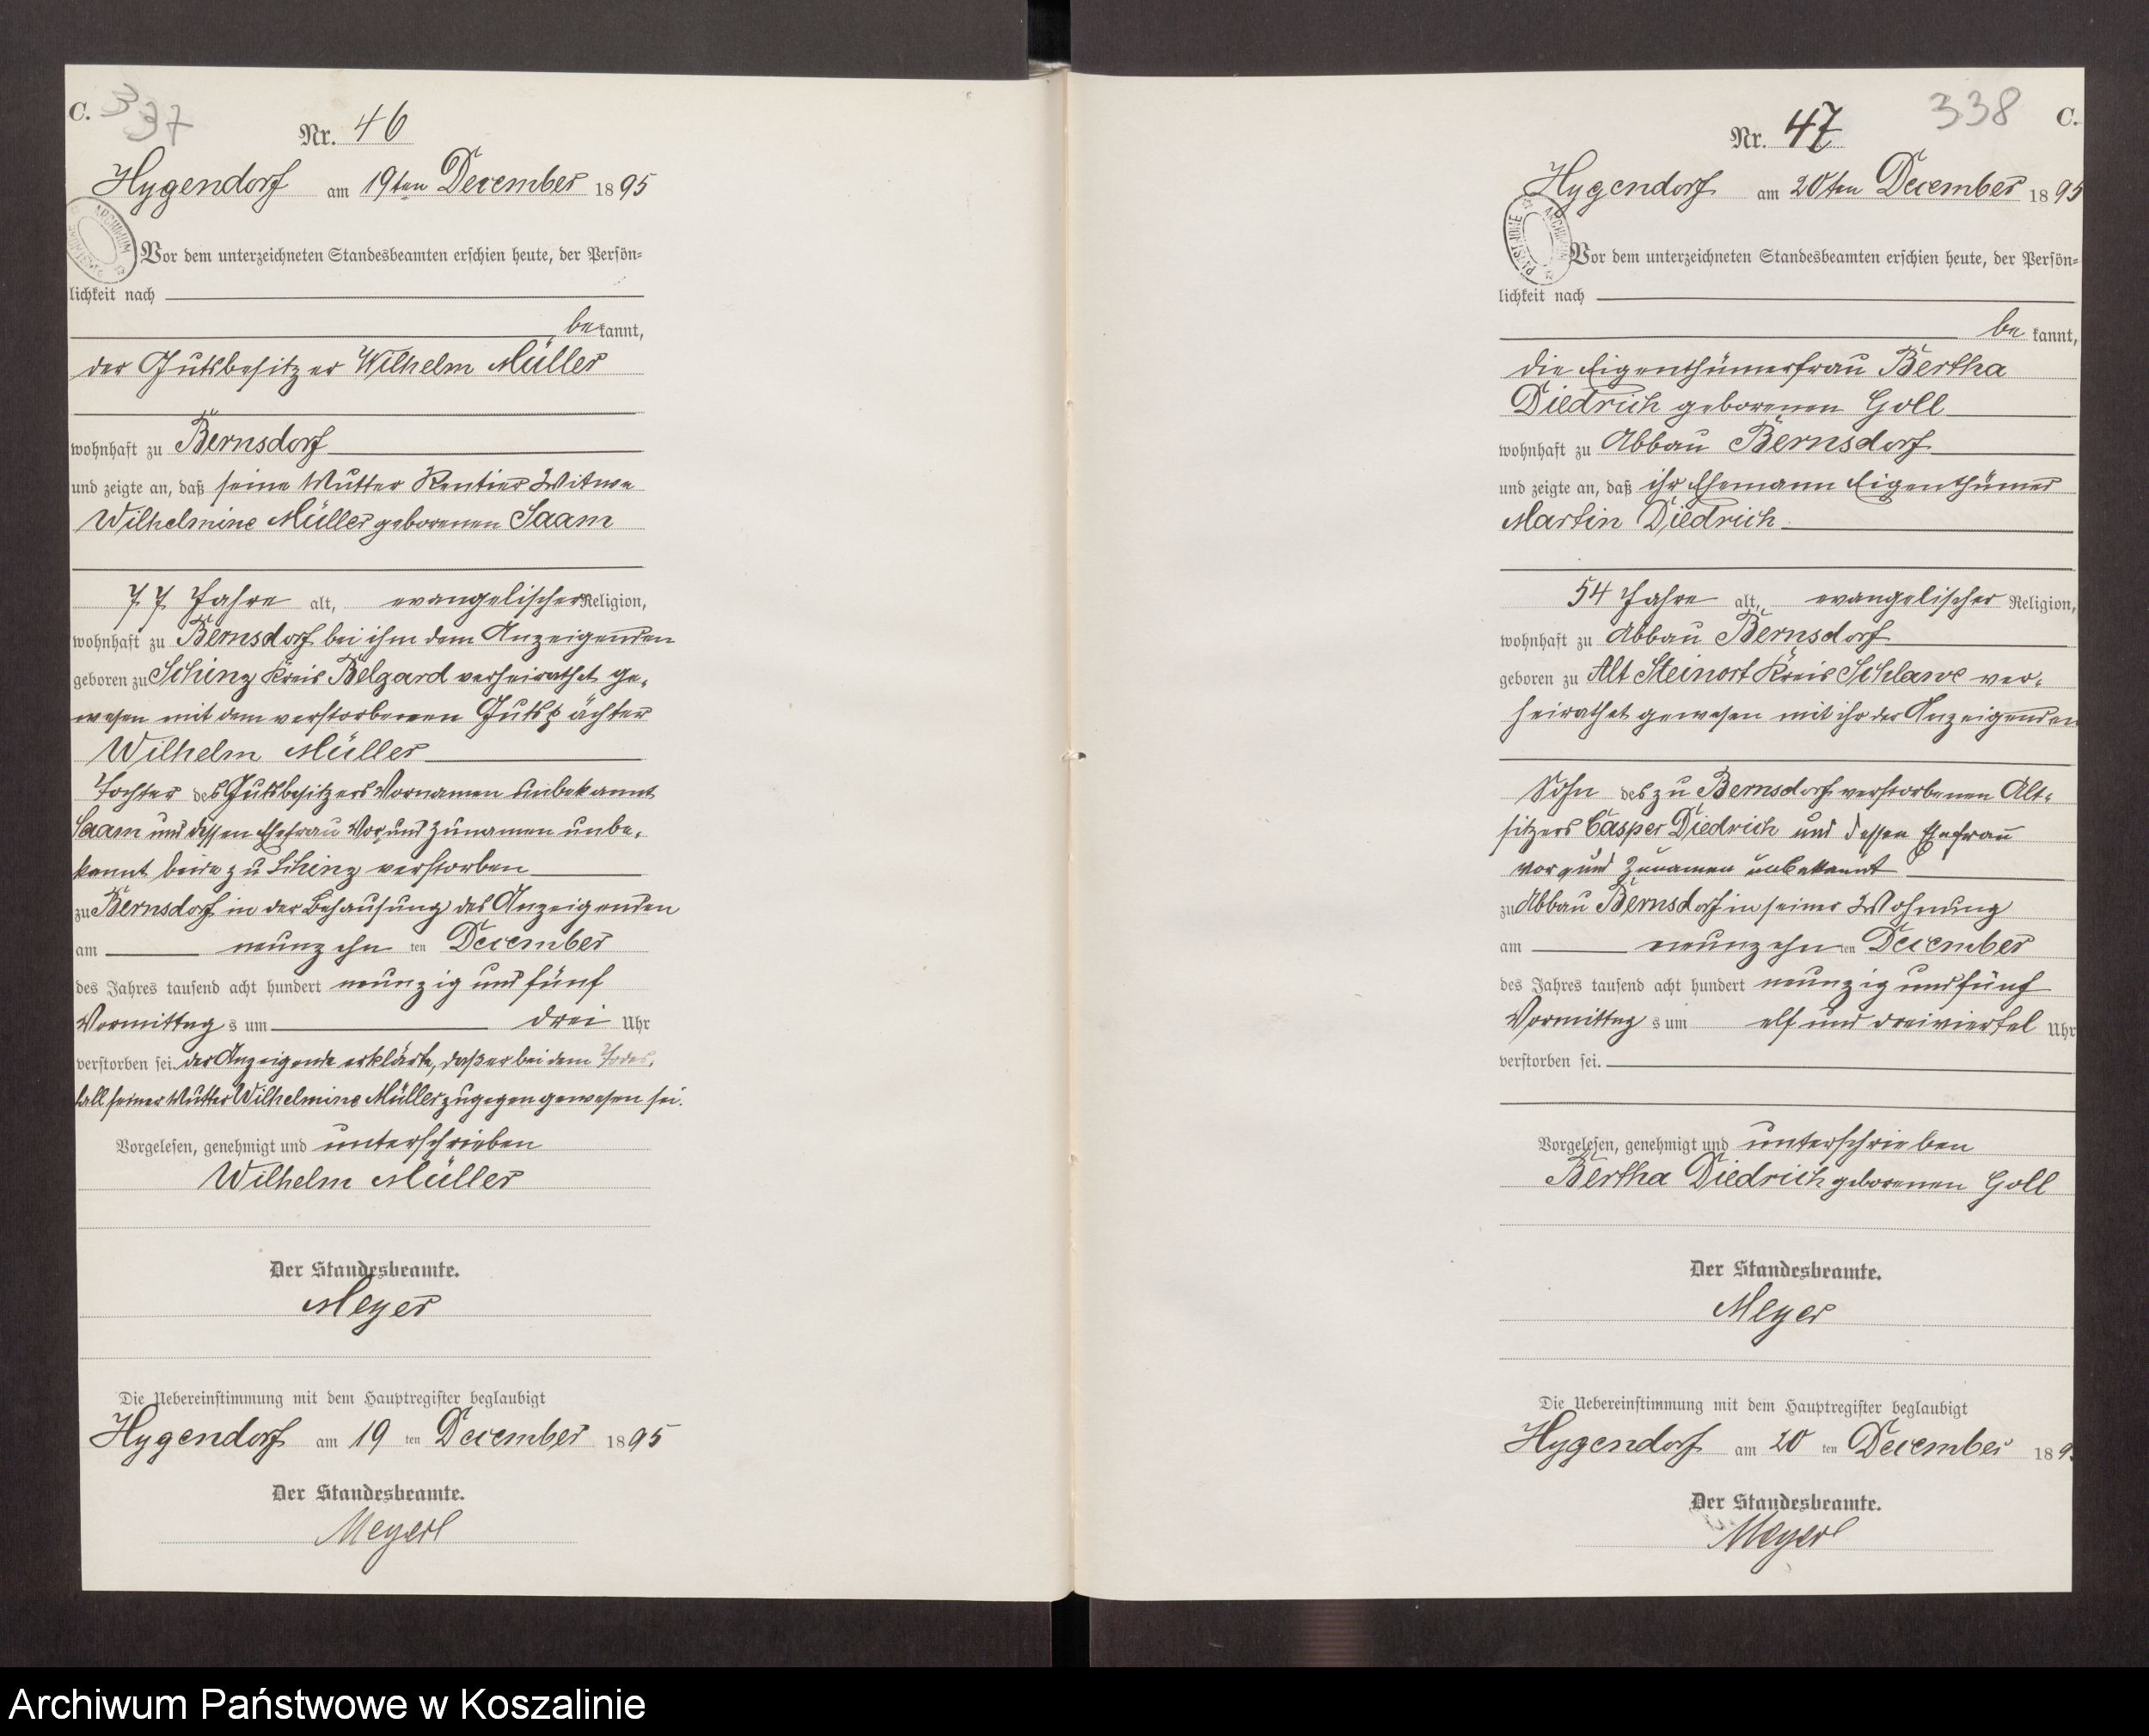 C. 337
Nr. 46
Hygendorf am 19ten December 1895
ARCHIWUM PAŃSTWOWE
Vor dem unterzeichneten Standesbeamten erschien heute, der Persön-
lichkeit nach
bekannt,
der Gutsbesitzer Wilhelm Müller
wohnhaft zu Bernsdorf
und zeigte an, daß seine Mutter Rentier Witwe
Wilhelmine Müller geborenen Saam
77 Jahre alt, evangelischer Religion,
wohnhaft zu Bernsdorf bei ihm dem Anzeigenden
geboren zu Schinz Kreis Belgard verheirathet ge-
wesen mit dem verstorbenen Gutspächter
Wilhelm Müller
Tochter des Gutsbesitzers Vornamen unbekannt
Saam und dessen Ehefrau Vor und Zunamen unbe-
kannt beide zu Schinz verstorben
zu Bernsdorf in der Behausung des Anzeigenden
am neunzehn ten December
des Jahres tausend acht hundert neunzig und fünf
Vormittags um drei Uhr
verstorben sei. der Anzeigende erklärte, daß er bei dem Todes-
fall seiner Mutter Wilhelmine Müller zugegen gewesen sei.
Vorgelesen, genehmigt und unterschrieben
Wilhelm Müller
Der Standesbeamte.
Meyer
Die Uebereinstimmung mit dem Hauptregister beglaubigt
Hygendorf am 19 ten December 1895
Der Standesbeamte.
Meyer
338 C.
Nr. 47
Hygendorf am 20ten December 1895
ARCHIWUM PAŃSTWOWE
Vor dem unterzeichneten Standesbeamten erschien heute, der Persön-
lichkeit nach
bekannt,
die Eigenthümerfrau Bertha
Diedrich geborenen Goll
wohnhaft zu Abbau Bernsdorf
und zeigte an, daß ihr Ehemann Eigenthümer
Martin Diedrich
54 Jahre alt, evangelischer Religion,
wohnhaft zu Abbau Bernsdorf
geboren zu Alt Steinort Kreis Schlawe ver-
heirathet gewesen mit ihr der Anzeigenden
Sohn des zu Bernsdorf verstorbenen Alt-
sitzers Casper Diedrich und dessen Ehefrau
Vor und Zunamen unbekannt
zu Abbau Bernsdorf in seiner Wohnung
am neunzehn ten December
des Jahres tausend acht hundert neunzig und fünf
Vormittags um elf und dreiviertel Uhr
verstorben sei.
Vorgelesen, genehmigt und unterschrieben
Bertha Diedrich geborenen Goll
Der Standesbeamte.
Meyer
Die Uebereinstimmung mit dem Hauptregister beglaubigt
Hygendorf am 20 ten December 189
Der Standesbeamte.
Meyer
Archiwum Państwowe w Koszalinie